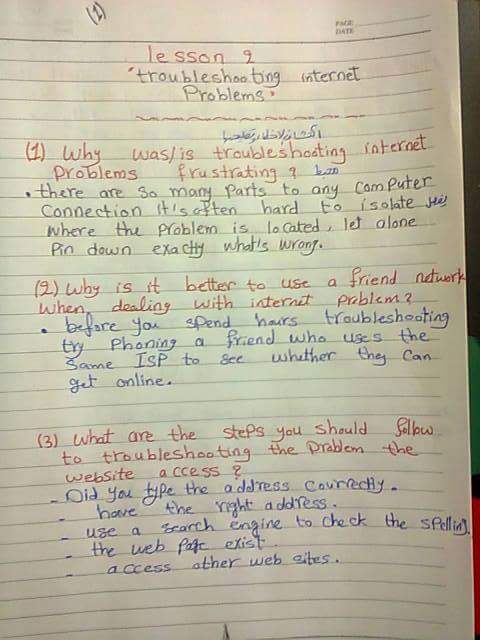 (1)
PAGE
DATE
lesson 2
"troubleshooting internet
Problems"
(1) Why was/is troubleshooting internet
Problems frustrating?
• there are so many parts to any computer
Connection It's often hard to isolate
where the problem is located, let alone
Pin down exactly what's wrong.
(2) why is it better to use a friend network
when dealing with internet problem?
• before you spend hours troubleshooting
try Phoning a friend who uses the
same ISP to see whether they can
get online.
(3) what are the steps you should follow
to troubleshooting the problem the
website access?
- Did you type the address courrectly.
- have the right address.
- use a search engine to check the spelling.
- the web page exist.
- access other web sites.